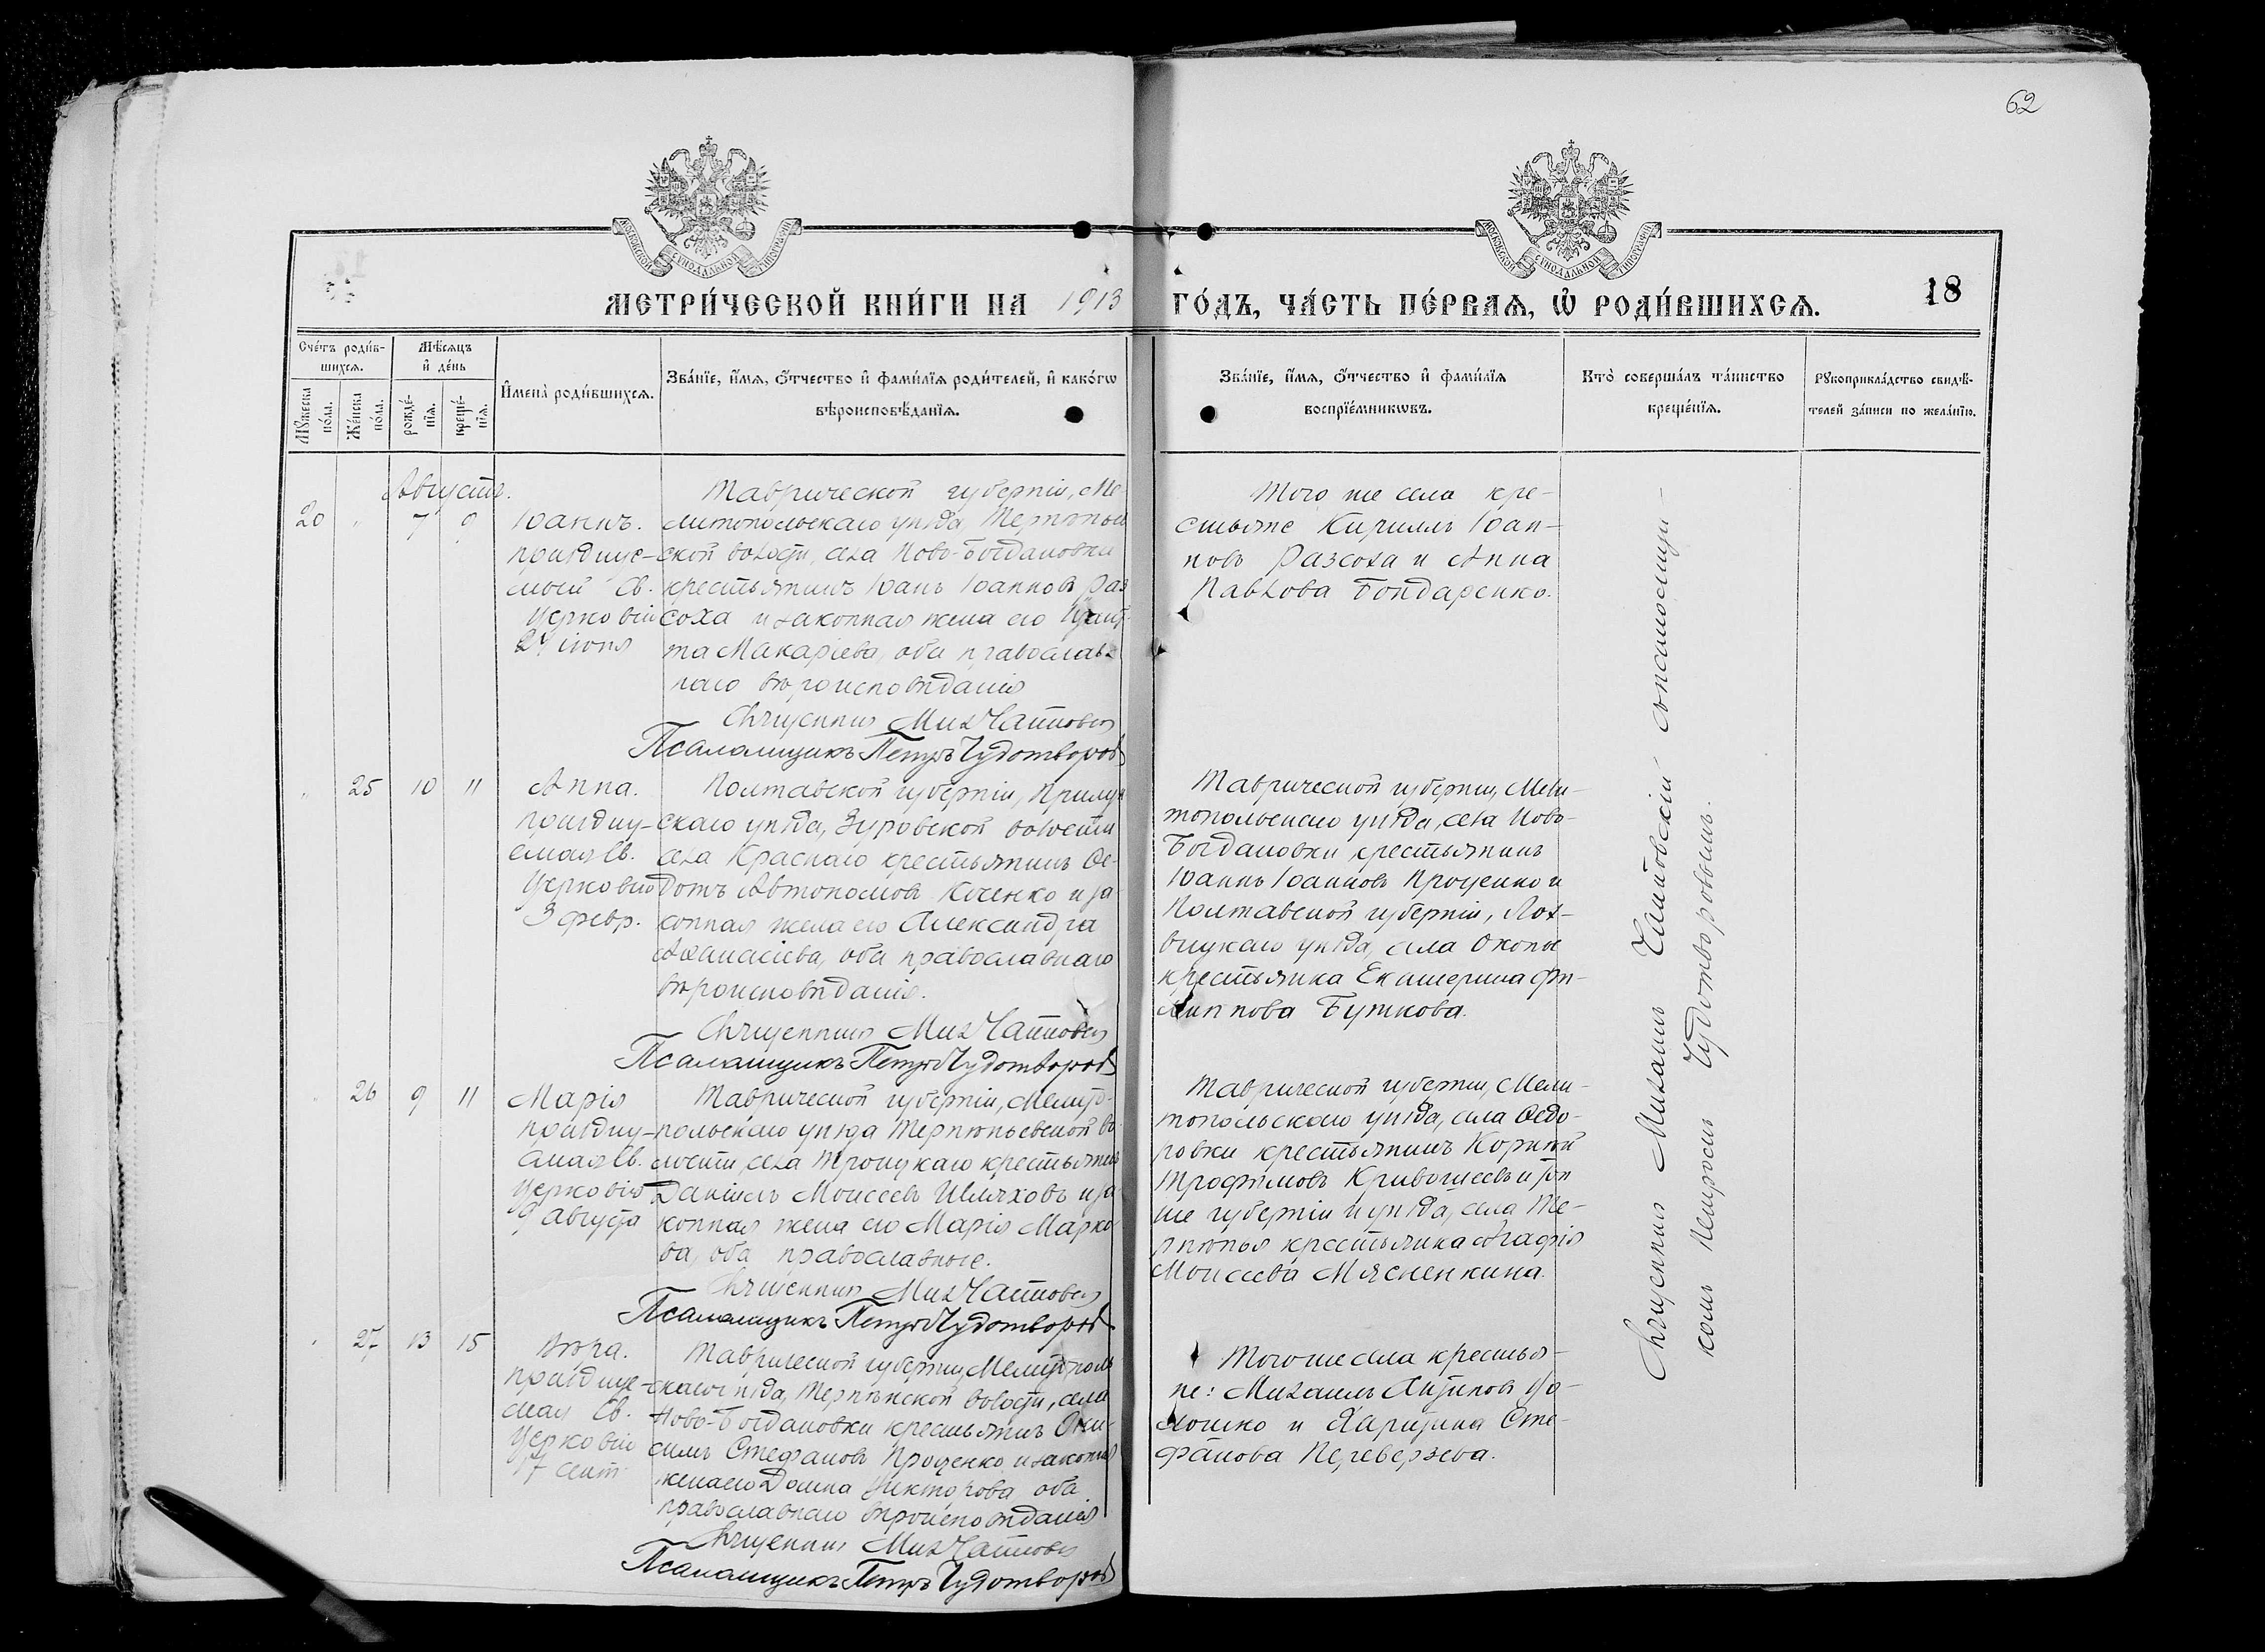 62
МЕТРИЧЕСКОЙ КНИГИ НА 1913
ГОДЪ, ЧАСТЬ ПЕРВАЯ, Ѡ РОДИВШИХСЯ.
18
Счетъ родив-
шихся.
Мужеска
пола.
Женска
пола.
Мѣсяцъ
и день
рожде-
нїя.
креще-
нїя.
Имена родившихся.
Званїе, имя, отчество и фамилїя родителей, и какогѡ
вѣроисповѣданїя.
Званїе, имя, отчество и фамилїя
воспрїемникѡвъ.
Кто совершалъ таинство
крещенїя.
Рукоприкладство свидѣ-
телей записи по желанїю.
Августъ.
20 " 7 9
Іоаннъ.
празднуе-
мый Св.
Церковію
24 іюня
Таврической губерніи, Ме-
литопольскаго уѣзда, Терпѣньев
ской волости, села Ново-Богдановки
крестьянинъ Іоанъ Іоанновъ Раз
соха и законная жена его
та Макаріева, оба православ
наго вѣроисповѣданія
Священникъ Мих
Псаломщикъ Петръ Чудотворовъ
Того же села кре-
стьяне Кириллъ Іоан-
новъ Разсоха и Анна
Павлова Бондаренко.
" 25 10 11
Анна.
праздну-
емая Св.
Церковію
3 февр.
Полтавской губерніи, Прилук
скаго уѣзда, Журовской волости
села Краснаго крестьянинъ Ѳе-
дотъ Автономовъ и за
конная жена его Александра
Аѳанасіева, оба православнаго
вѣроисповѣданія.
Священникъ Мих
Псаломщикъ Петръ Чудотворовъ
Таврической губерніи, Мели-
топольскаго уѣзда, села Ново-
Богдановки крестьянинъ
Іоаннъ Іоанновъ Проценко и
Полтавской губерніи, Лох-
вицкаго уѣзда, села Окопъ
крестьянка Екатерина Фи-
липпова Буткова.
" 26 9 11
Марія
праздну-
емая Св.
Церковію
9 августа
Таврической губерніи, Мелито-
польскаго уѣзда Терпѣньевской во
лости, села Троицкаго крестьянинъ
Даніилъ Моисеевъ Шляховъ и за
конная жена его Марія Марко
ва, оба православные.
Священникъ Мих
Псаломщикъ Петръ Чудотворовъ
Таврической губерніи, Мели-
топольскаго уѣзда, села Ѳедо-
ровки крестьянинъ Корній
Трофимовъ Кривошеевъ и той
же губерніи и уѣзда, села Те-
рпѣнья крестьянка Агафія
Моисеева Мясненкина.
" 27 13 15
Вѣра.
праздnuе-
мая Св.
Церковію
17 сент.
Таврической губерніи, Мелитополь
скаго уѣзда, Терпѣнской волости, села
Ново-Богдановки крестьянинъ Они
симъ Стефановъ Проценко и законная
жена его Домна Викторова оба
православнаго вѣроисповѣданія
Священникъ Мих
Псаломщикъ Петръ Чудотворовъ
Того же села крестья-
не: Михаилъ Антиповъ Во-
лошко и Стe-
фанова Переверзева.
Священникъ Михаилъ съ псаломщи-
комъ Петромъ Чудотворовымъ.